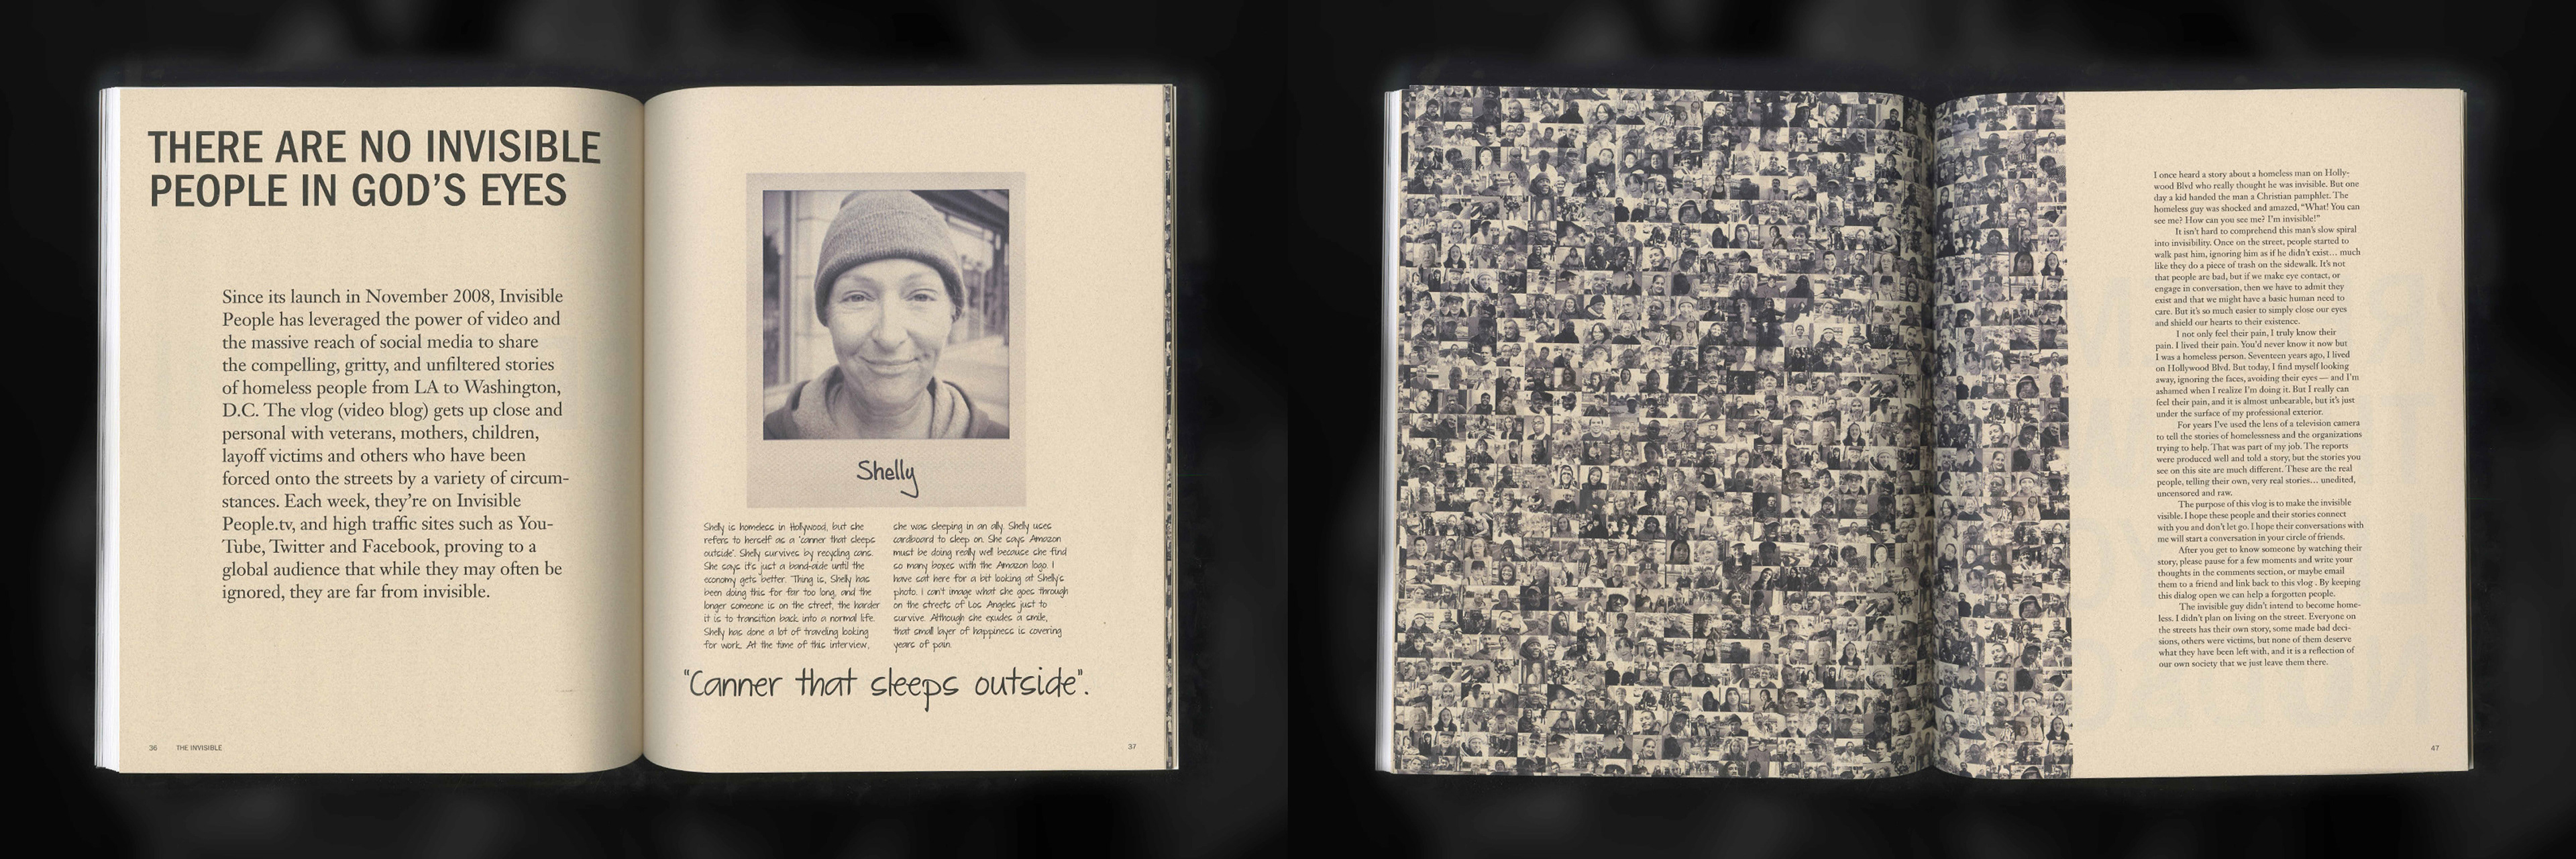 THERE ARE NO INVISIBLE
PEOPLE IN GOD'S EYES
Since its launch in November 2008, Invisible
People has leveraged the power of video and
the massive reach of social media to share
the compelling, gritty, and unfiltered stories
of homeless people from LA to Washington,
D.C. The vlog (video blog) gets up close and
personal with veterans, mothers, children,
layoff victims and others who have been
forced onto the streets by a variety of circum-
stances. Each week, they're on Invisible
People.tv, and high traffic sites such as You-
Tube, Twitter and Facebook, proving to a
global audience that while they may often be
ignored, they are far from invisible.
36 THE INVISIBLE
Shelly
Shelly is homeless in Hollywood, but she
refers to herself as a "canner that sleeps
outside". Shelly survives by recycling cans.
She says it's just a band-aide until the
economy gets better. Thing is, Shelly has
been doing this for far too long, and the
longer someone is on the street, the harder
it is to transition back into a normal life.
Shelly has done a lot of traveling looking
for work. At the time of this interview,
she was sleeping in an ally. Shelly uses
cardboard to sleep on. She says Amazon
must be doing really well because she find
so many boxes with the Amazon logo. I
have sat here for a bit looking at Shelly's
photo. I can't image what she goes through
on the streets of Los Angeles just to
survive. Although she exudes a smile,
that small layer of happiness is covering
years of pain.
"Canner that sleeps outside".
37
I once heard a story about a homeless man on Holly-
wood Blvd who really thought he was invisible. But one
day a kid handed the man a Christian pamphlet. The
homeless guy was shocked and amazed, "What! You can
see me? How can you see me? I'm invisible!"
It isn't hard to comprehend this man's slow spiral
into invisibility. Once on the street, people started to
walk past him, ignoring him as if he didn't exist… much
like they do a piece of trash on the sidewalk. It's not
that people are bad, but if we make eye contact, or
engage in conversation, then we have to admit they
exist and that we might have a basic human need to
care. But it's so much easier to simply close our eyes
and shield our hearts to their existence.
I not only feel their pain, I truly know their
pain. I lived their pain. You'd never know it now but
I was a homeless person. Seventeen years ago, I lived
on Hollywood Blvd. But today, I find myself looking
away, ignoring the faces, avoiding their eyes — and I'm
ashamed when I realize I'm doing it. But I really can
feel their pain, and it is almost unbearable, but it's just
under the surface of my professional exterior.
For years I've used the lens of a television camera
to tell the stories of homelessness and the organizations
trying to help. That was part of my job. The reports
were produced well and told a story, but the stories you
see on this site are much different. These are the real
people, telling their own, very real stories… unedited,
uncensored and raw.
The purpose of this vlog is to make the invisible
visible. I hope these people and their stories connect
with you and don't let go. I hope their conversations with
me will start a conversation in your circle of friends.
After you get to know someone by watching their
story, please pause for a few moments and write your
thoughts in the comments section, or maybe email
them to a friend and link back to this vlog . By keeping
this dialog open we can help a forgotten people.
The invisible guy didn't intend to become home-
less. I didn't plan on living on the street. Everyone on
the streets has their own story, some made bad deci-
sions, others were victims, but none of them deserve
what they have been left with, and it is a reflection of
our own society that we just leave them there.
47